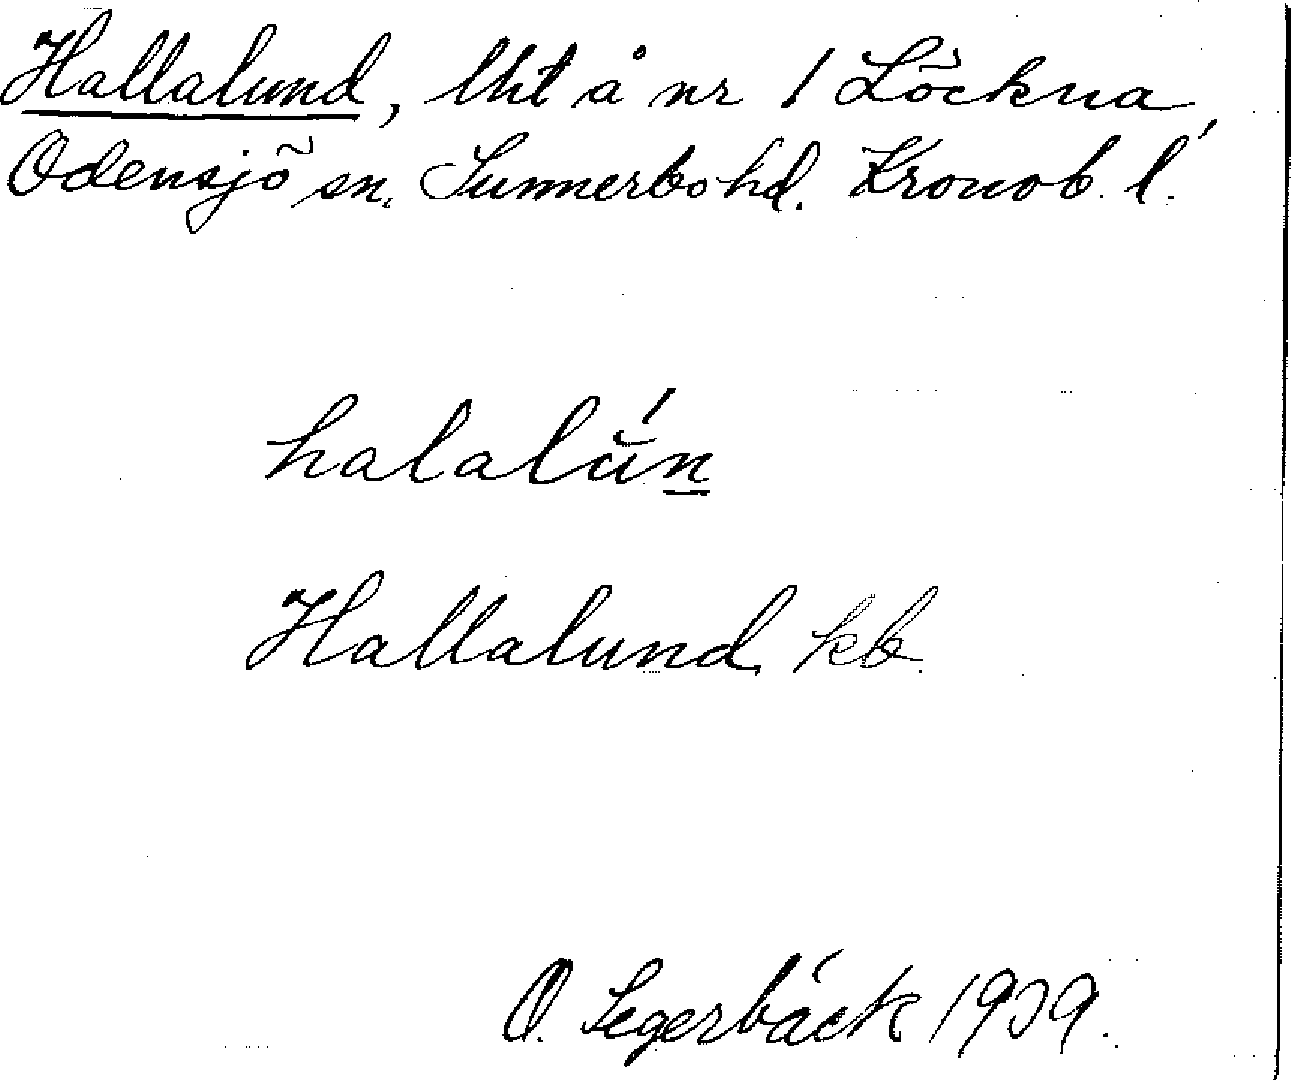 Hallalund, lht å nr 1 Löckna,
Odensjö sn. Sunnerbo hd. Kronob. l.
halalún
Hallalund kb.
O. Segerbäck 1939.